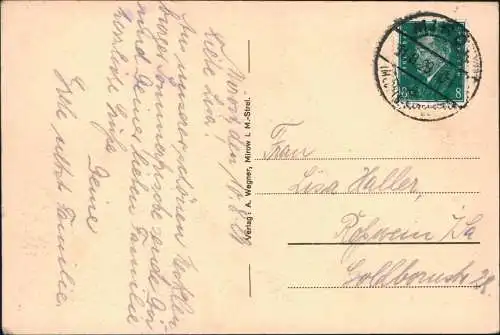 Mirow, den
Liebe Lisa!
Aus unserer schönen
Sommerfrische sende Dir
und Deiner lieben Familie
herzliche Grüße
Deine
nebst Familie.
Verlag: A. Wegner, Mirow i. M.-Strel.
Frau
Lisa Haller,
Roßwein i/Sa
Goldbornstr 28.
8
8